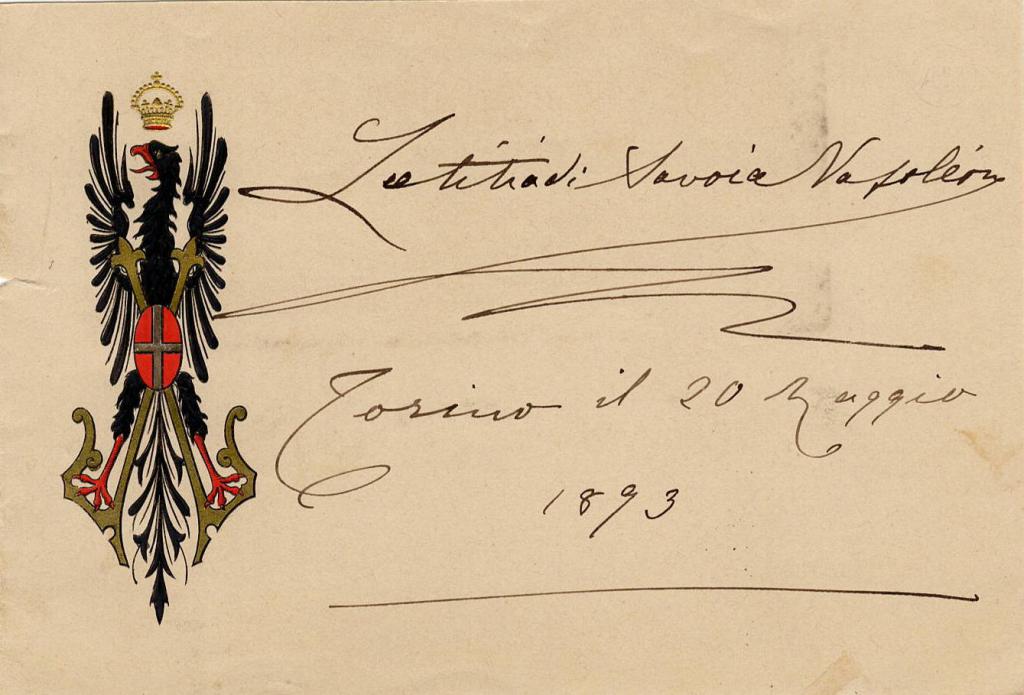 Laetitia di Savoia Napoléon
Torino il 20 Maggio
1893